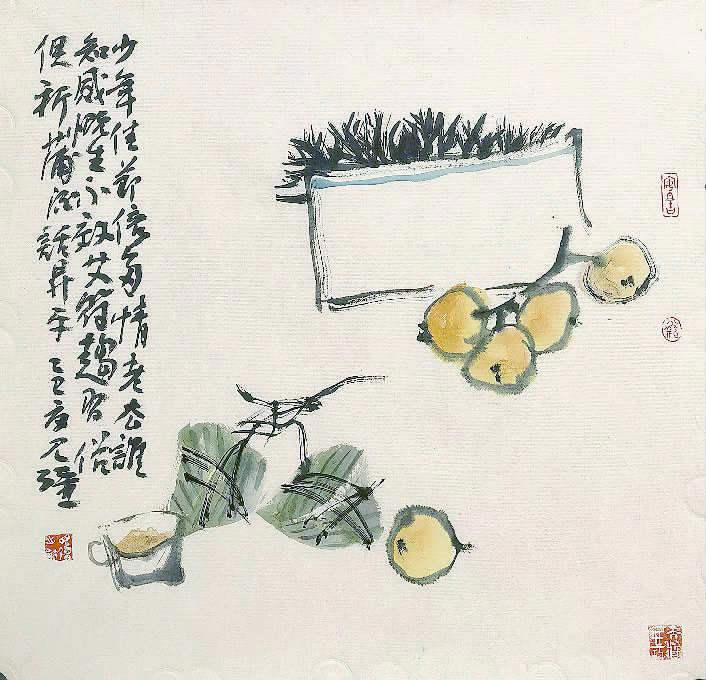 少年佳節倍多情老去誰
知感慨生不效艾符趨習俗
但祈蒲酒話昇平